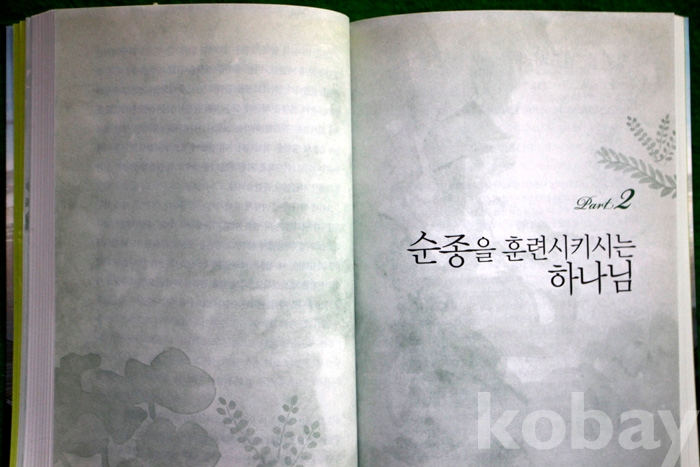 Part 2
순종을 훈련시키시는
하나님
kobay